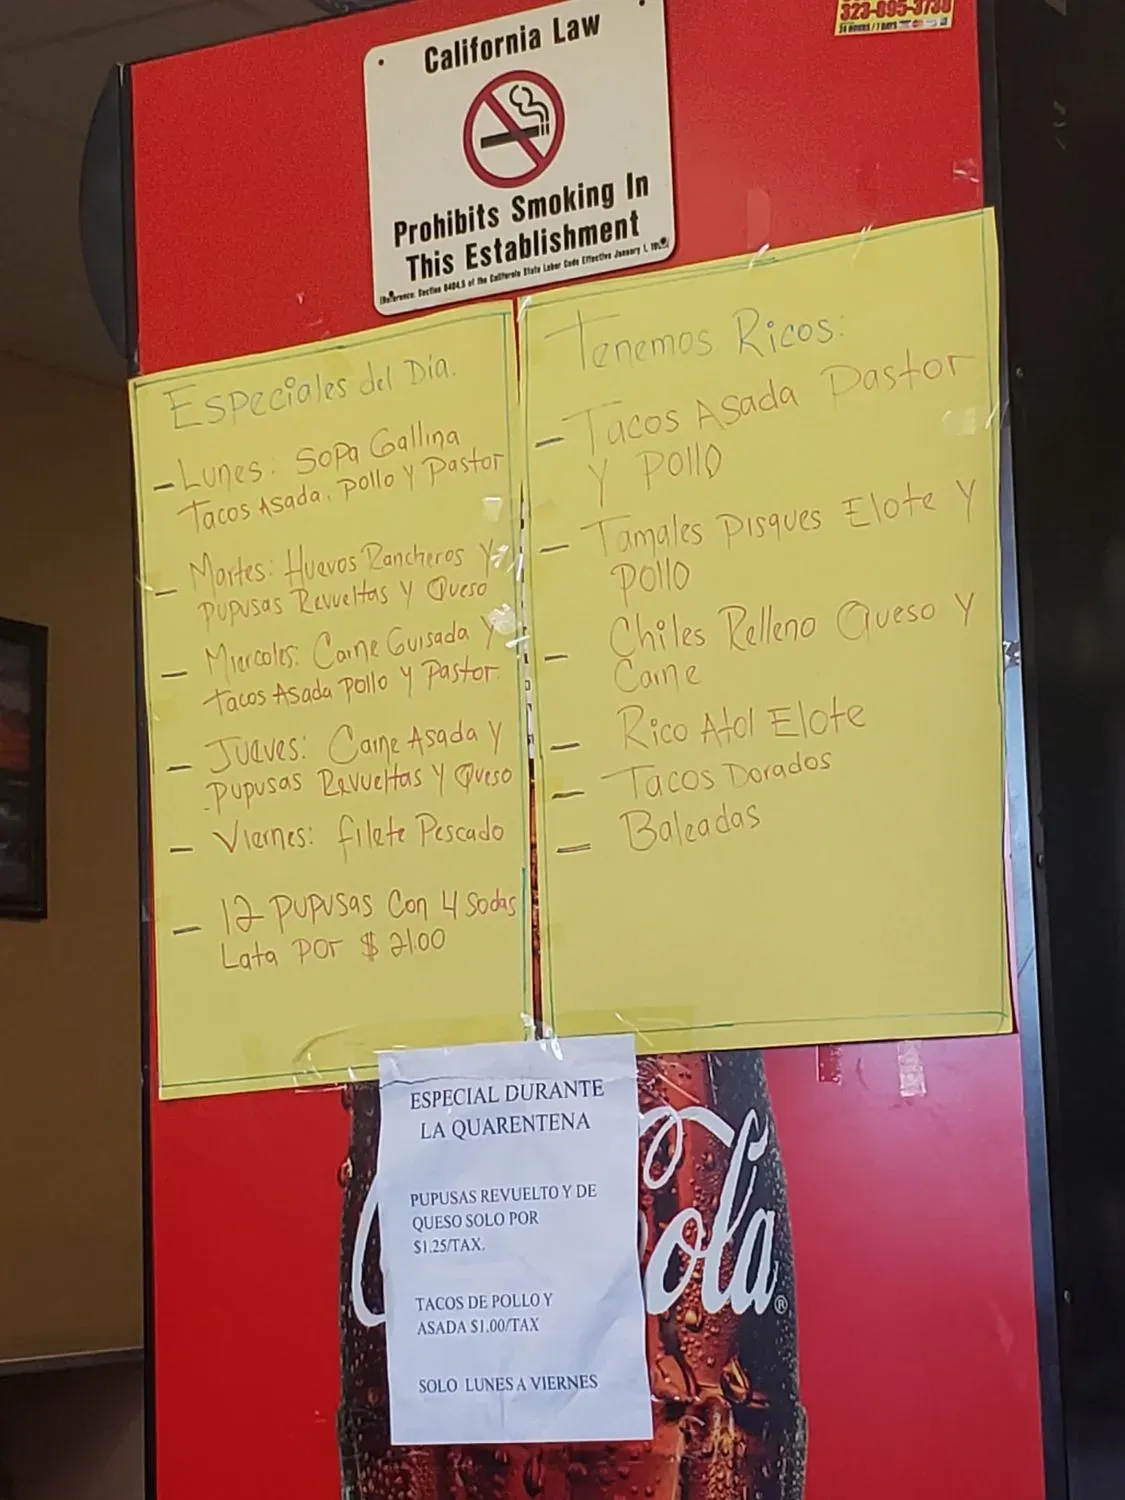 323-895-3738
24 HOURS / 7 DAYS
California Law
Prohibits Smoking In
This Establishment
Especiales del Dia.
- Lunes: Sopa Gallina
Tacos Asada, Pollo y Pastor
- Martes: Huevos Rancheros y
Pupusas Revueltas y Queso
- Miercoles: Carne Guisada y
Tacos Asada Pollo y Pastor.
- Jueves: Carne Asada y
Pupusas Revueltas y Queso
- Viernes: Filete Pescado
- 12 Pupusas Con 4 Sodas
Lata Por $ 21.00
Tenemos Ricos:
- Tacos Asada Pastor
y Pollo
- Tamales Pisques Elote y
Pollo
- Chiles Relleno Queso y
Carne
- Rico Atol Elote
- Tacos Dorados
- Baleadas
ESPECIAL DURANTE
LA QUARENTENA
PUPUSAS REVUELTO Y DE
QUESO SOLO POR
$1.25/TAX.
TACOS DE POLLO Y
ASADA $1.00/TAX
SOLO LUNES A VIERNES
Cola®